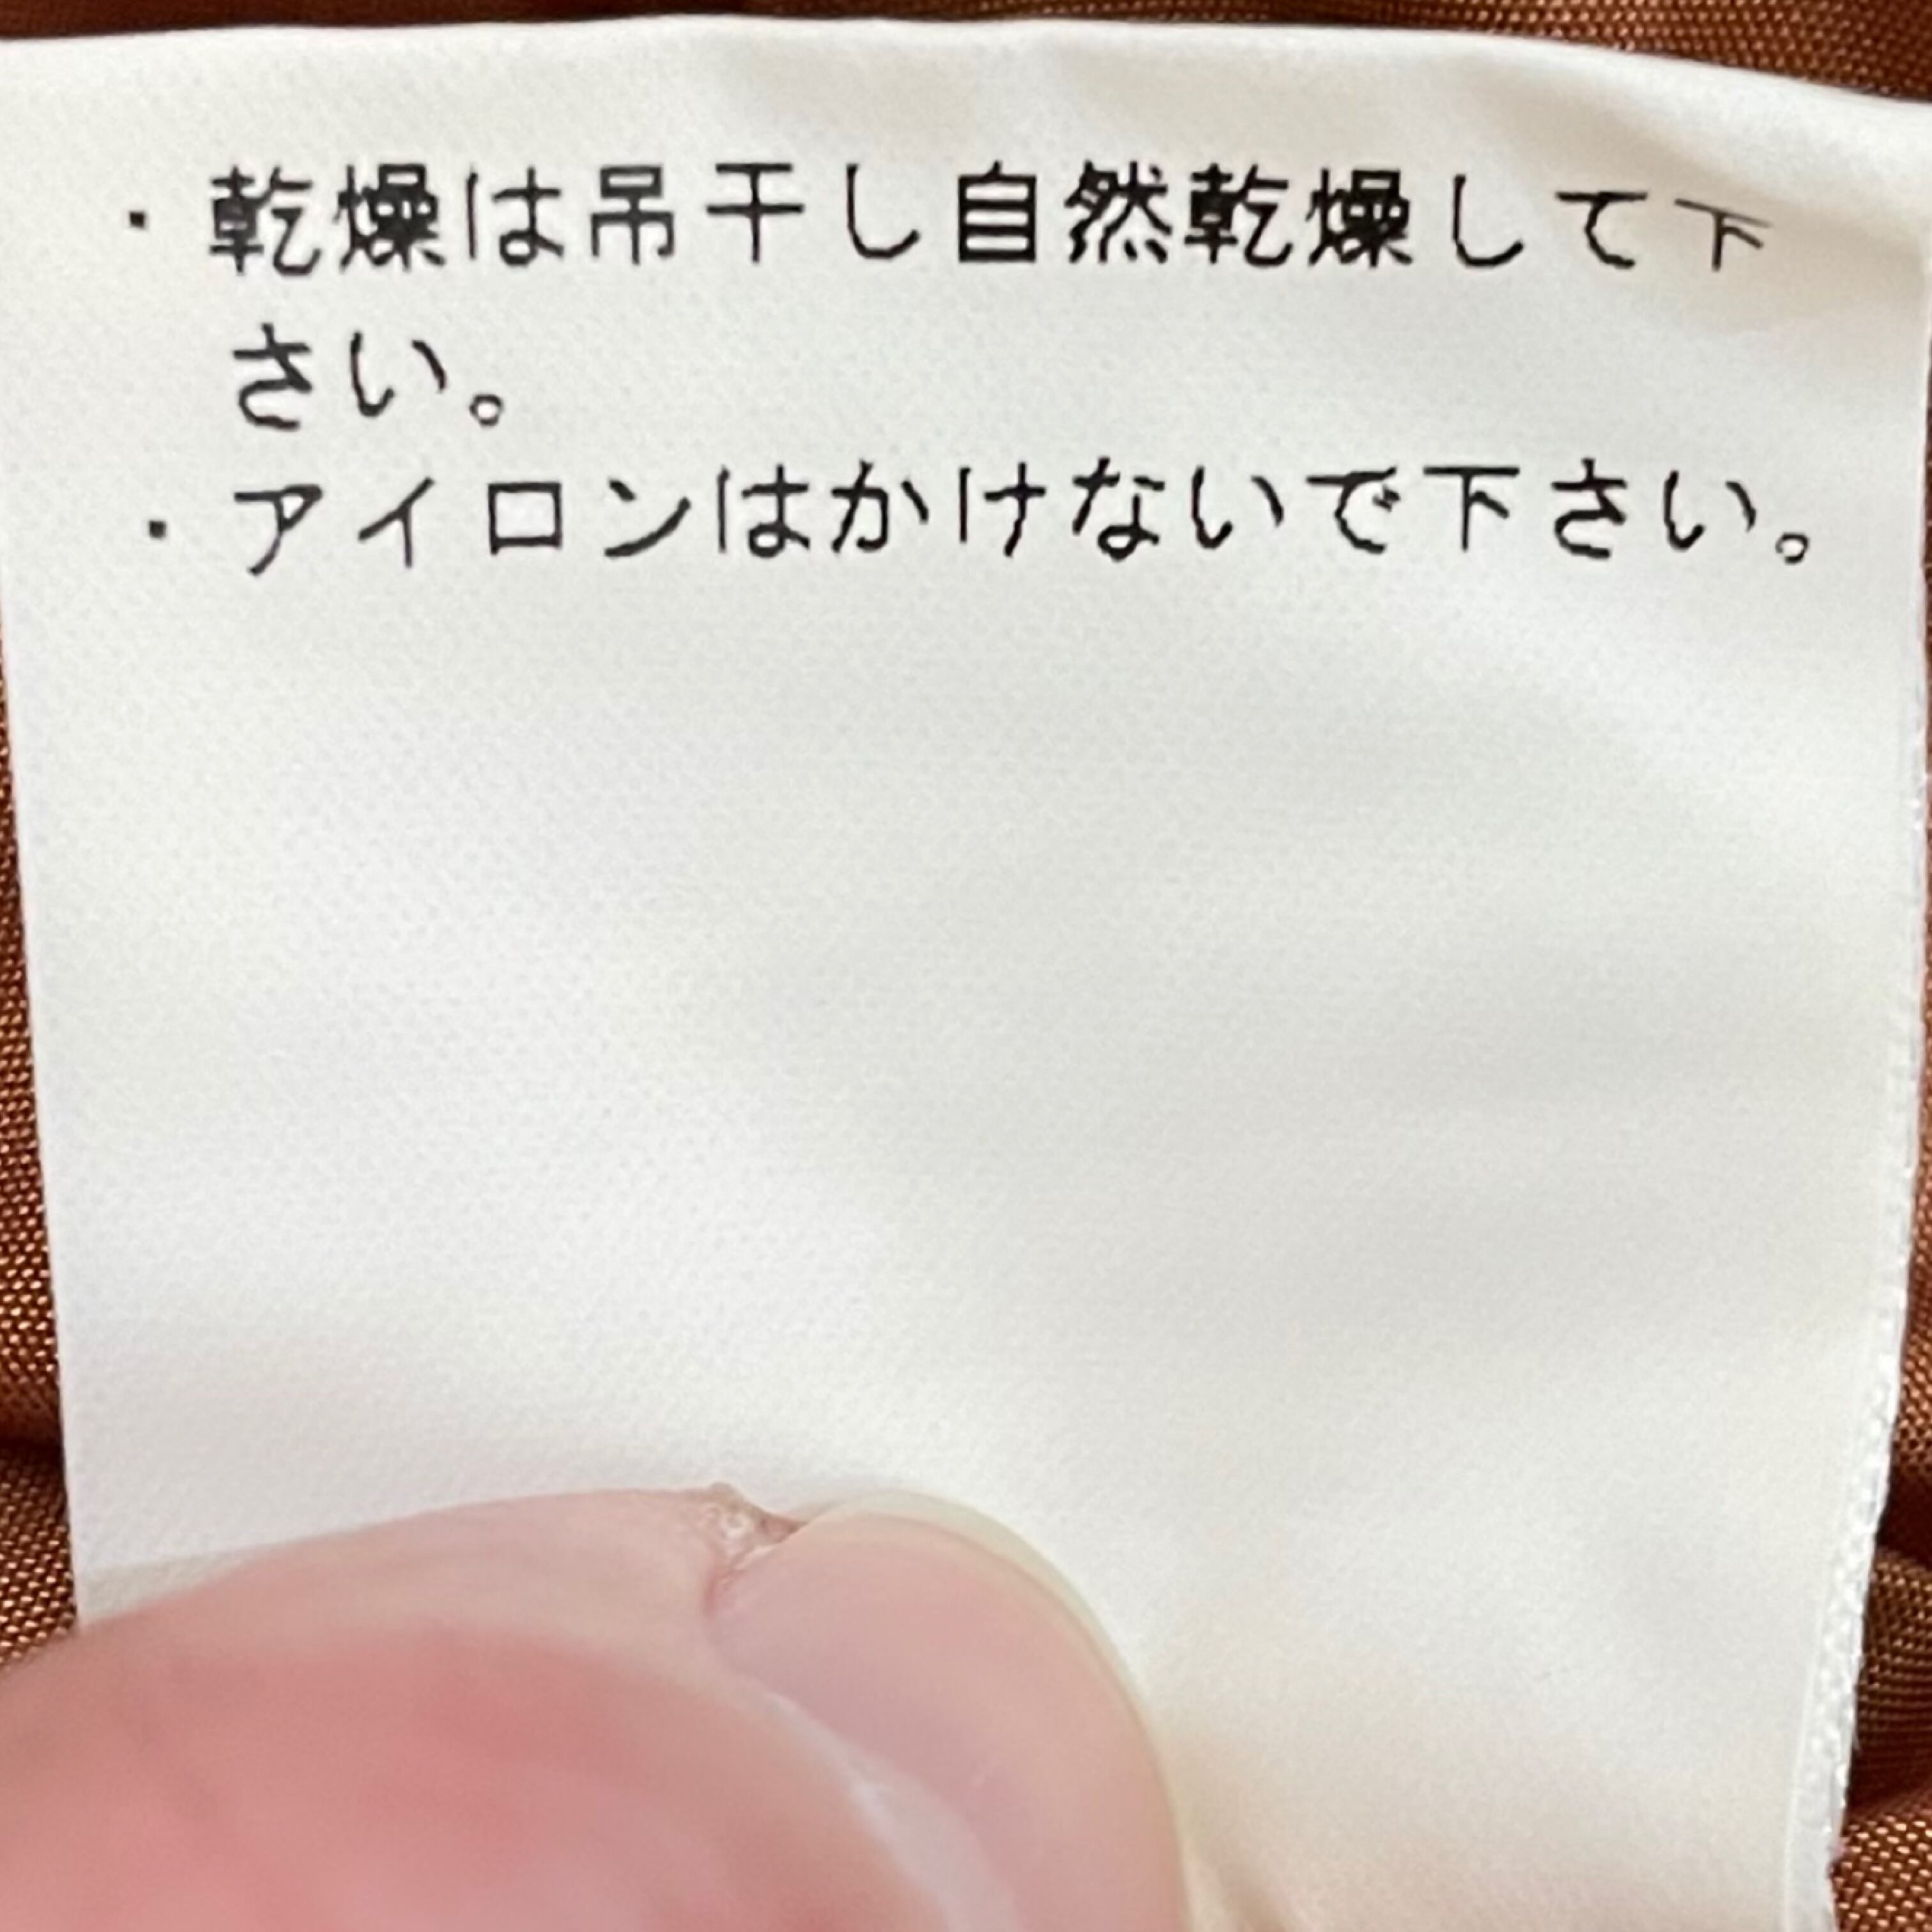 ・乾燥は吊干し自然乾燥して下
さい。
・アイロンはかけないで下さい。